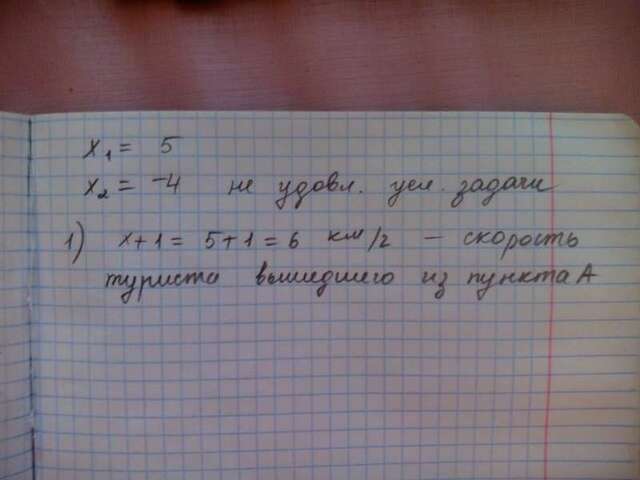 x₁ = 5
x₂ = -4 не удовл. усл. задачи
1) x+1 = 5+1 = 6 км/г - скорость
туриста вышедшего из пункта А